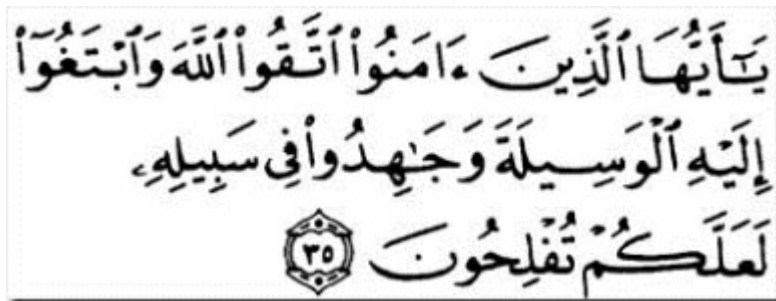 يَٰٓأَيُّهَا ٱلَّذِينَ ءَامَنُوا۟ ٱتَّقُوا۟ ٱللَّهَ وَٱبْتَغُوٓا۟
إِلَيْهِ ٱلْوَسِيلَةَ وَجَٰهِدُوا۟ فِى سَبِيلِهِۦ
لَعَلَّكُمْ تُفْلِحُونَ ٣٥